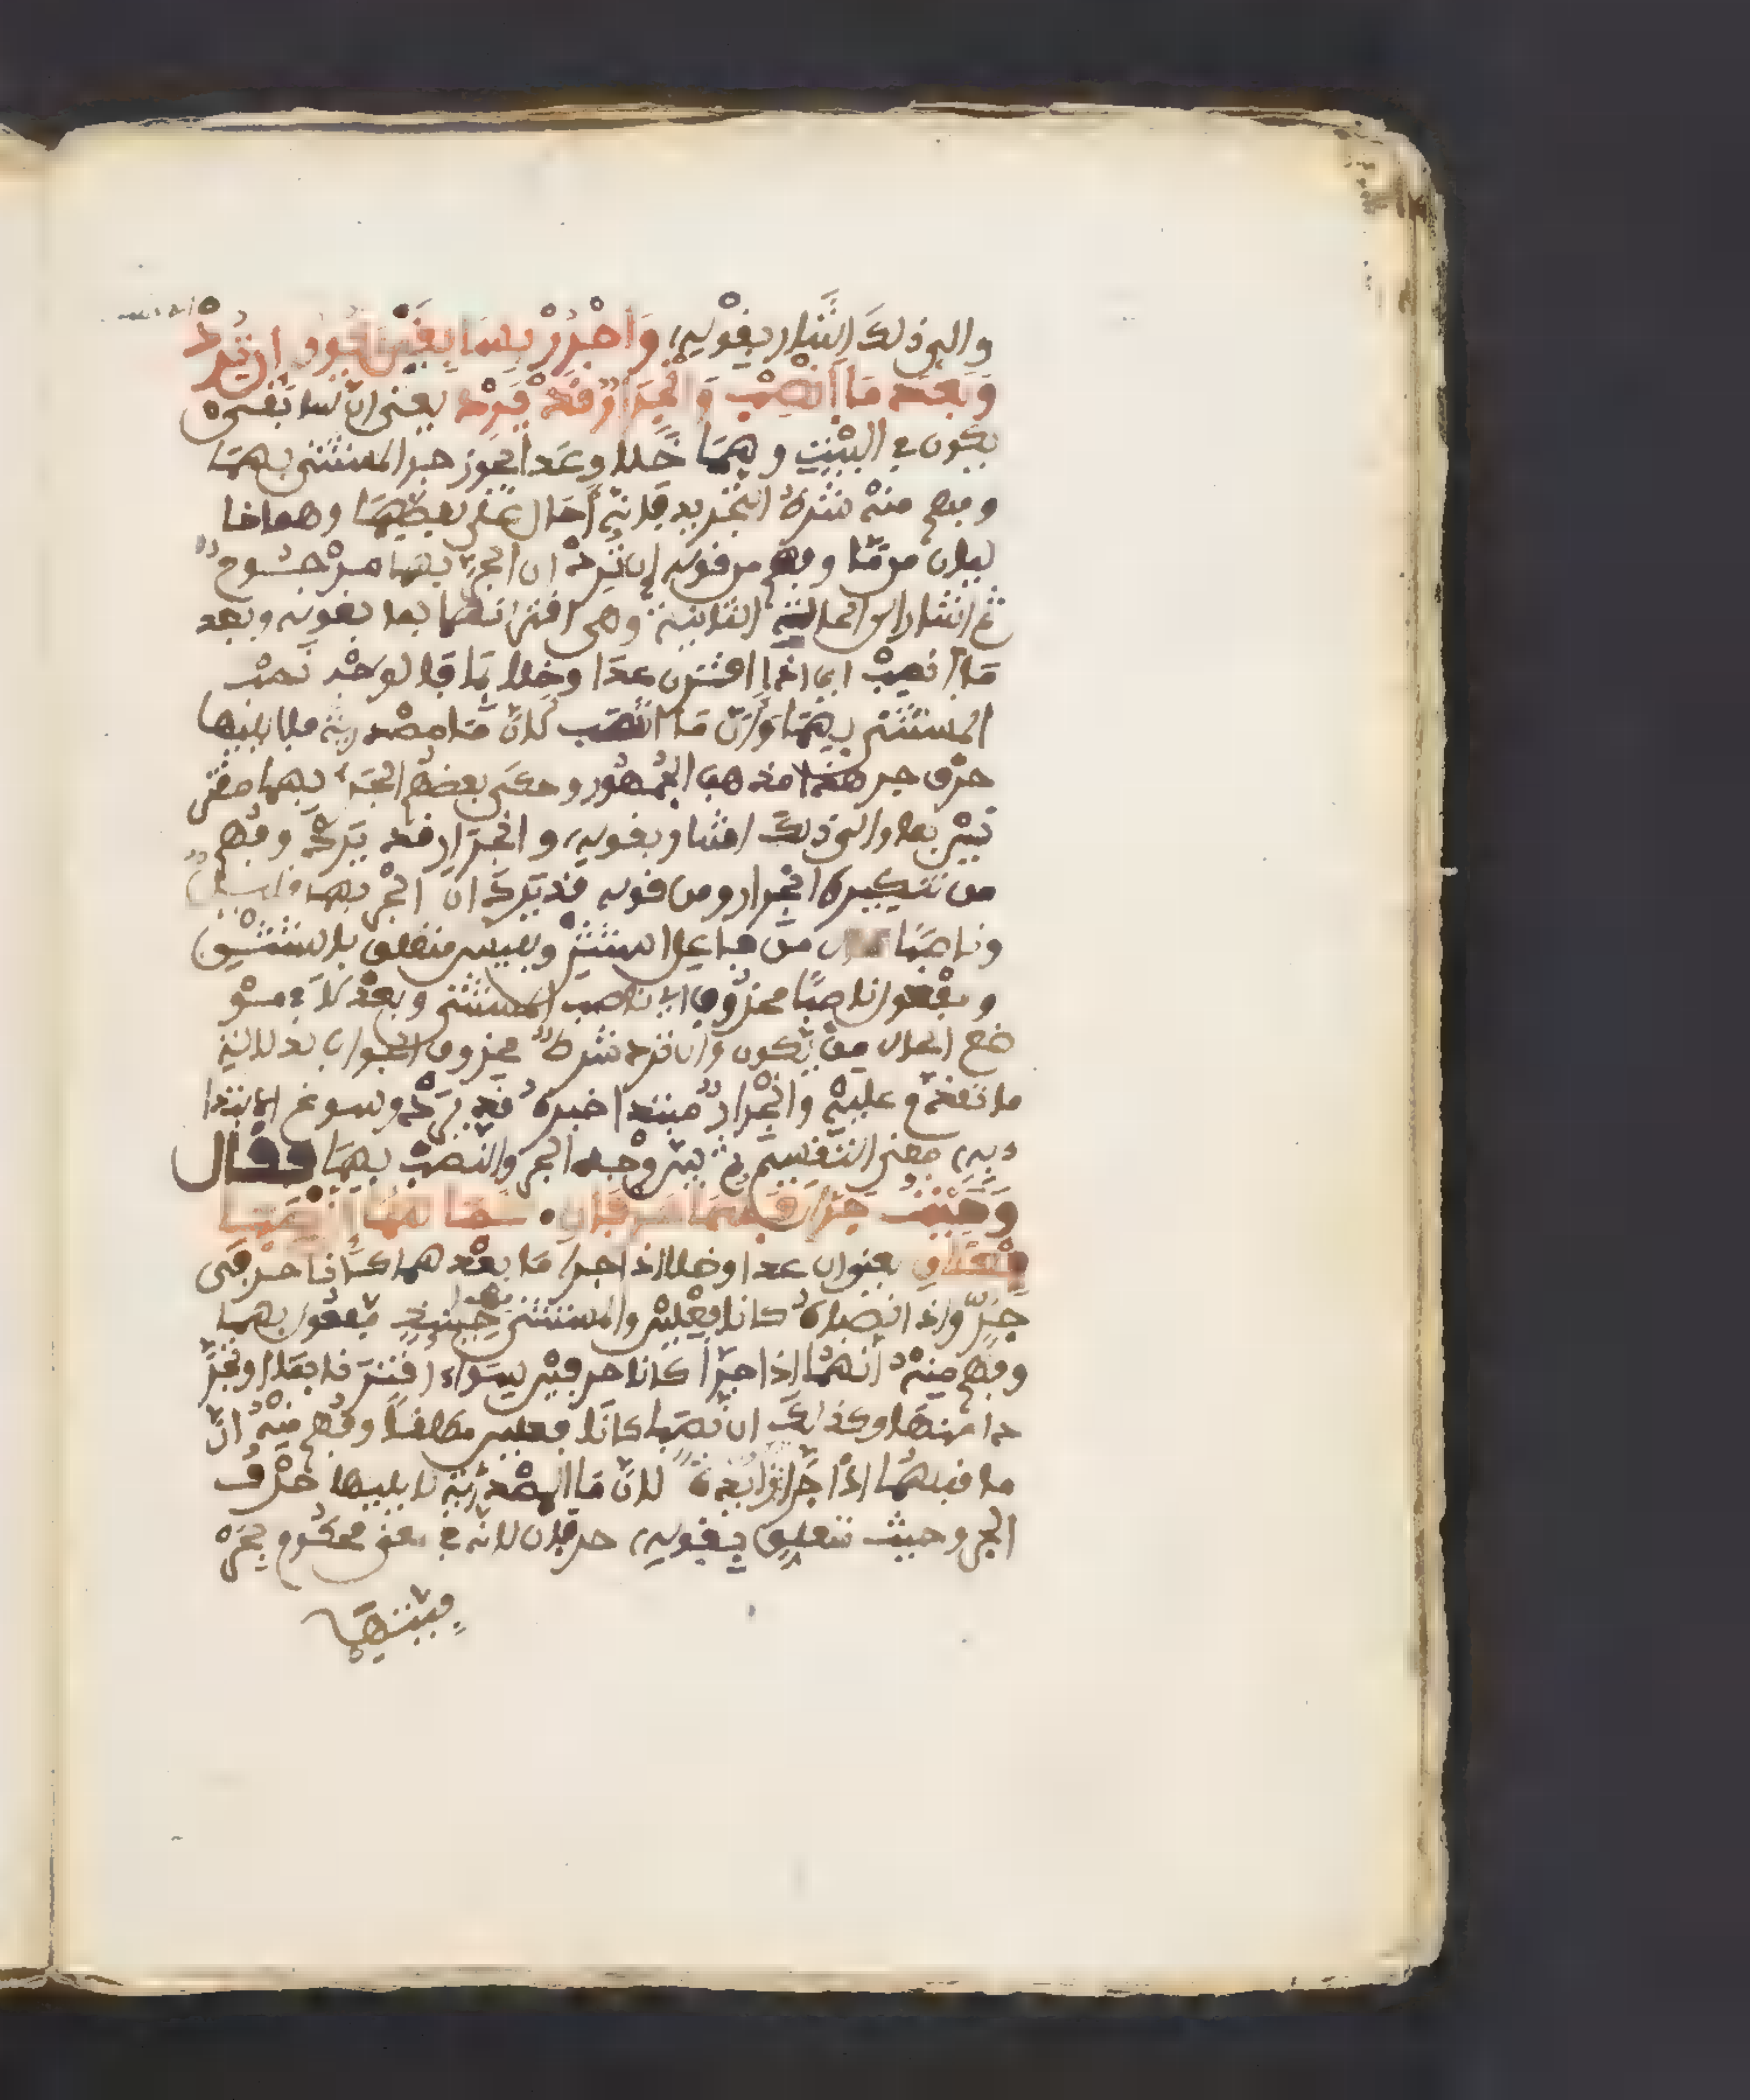 والى ذلك اشار بقوله واجرر بسابقي يكون ان ترد
وبعد ما انصب وانجرار قد يرد يعني ان سابقي
يكون في البيت وهما خلا وعدا يجوز جر المستثنى بهما
وفهم منه شرط التجريد فانه احال على بعضهما وهما خا
ليان من ما وفهم من قوله ان ترد ان الجر بهما مرجوح
ثم اشار الى الحالة الثانية وهي اقترانهما بما بقوله وبعد
ما انصب اي اذا اقترن عدا وخلا بما فالوجه نصب
المستثنى بهما وان ما انتصب لان ما مصدرية فلا يليها
حرف جر هذا مذهب الجمهور وحكى بعضهم الجر بهما مقتر
نين بما والى ذلك اشار بقوله وانجرار قد يرد وفهم
من تنكيره انجرار ومن قوله قد يرد ان الجر بهما قليل
وناصبا حال من فاعل استثن وبليس متعلق باستثن
ومفعول ناصبا محذوف اي ناصب المستثنى وبعد لا في مو
ضع الحال من يكون وان ترد شرط محذوف الجواب لدلالة
ما تقدم عليه وانجرار مبتدا خبره قد يرد وسوغ الابتدا
به معنى التقسيم ثم بين وجه الجر والنصب بهما فقال
وحيث جرا فهما حرفان كما هما ان نصبا
فعلان يعني ان عدا وخلا اذا جرا ما بعدهما كانا حرفي
جر واذا نصباه كانا فعلين والمستثنى بهما حينئذ مفعول بهما
وفهم منه انهما اذا جرا كانا حرفين سواء اقترنا بما او تجر
دا منها وكذلك ان نصبا كانا فعلين مطلقا وفهم منه ان
ما قبلهما اذا جرا زائدة لان ما المصدرية لا يليها حرف
الجر وحيث متعلق بقوله حرفان لانه في معنى محكوم بحر
فيتهما